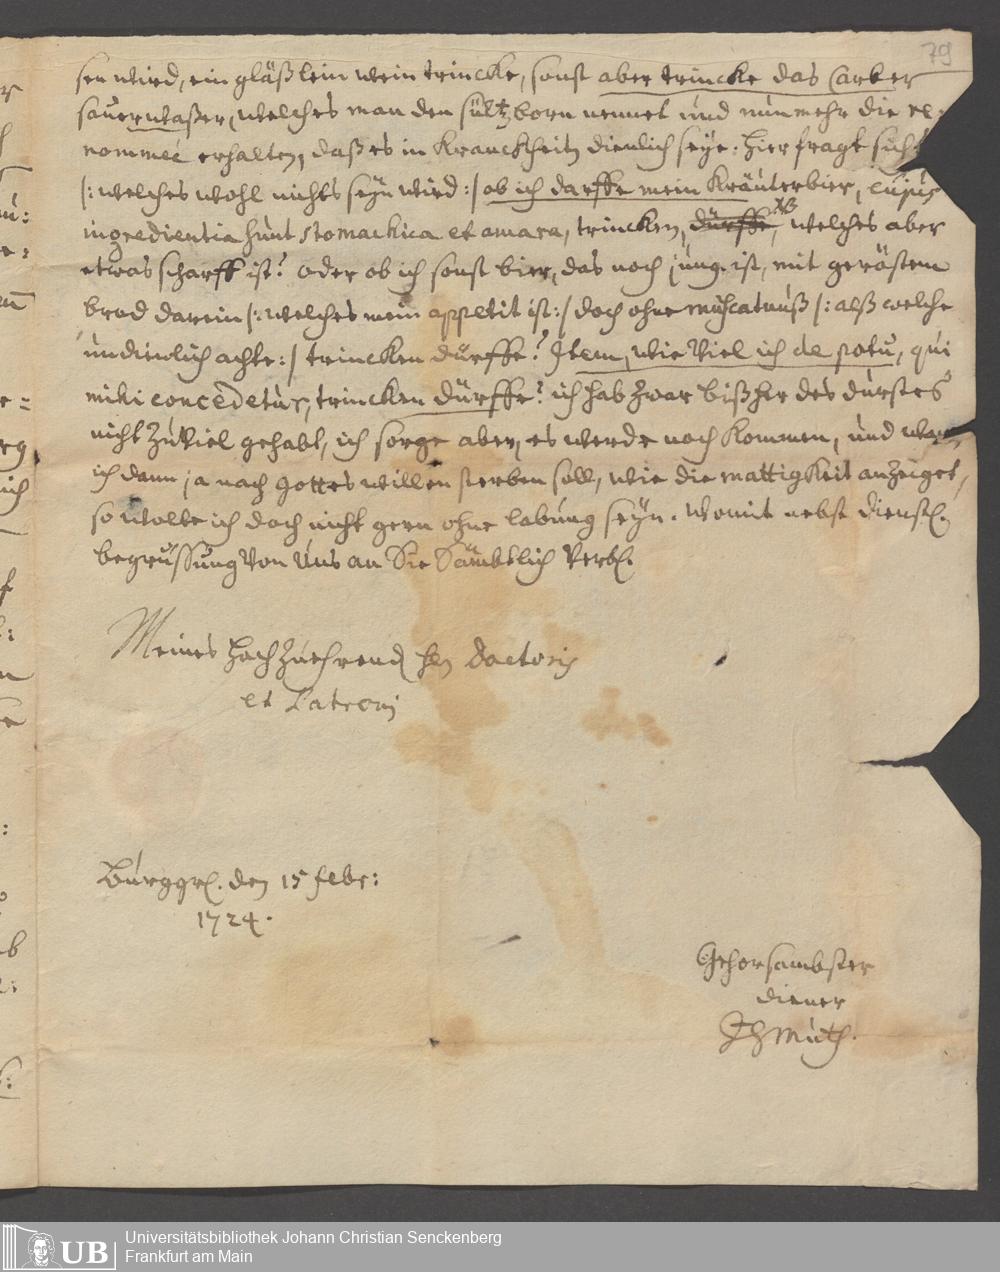 79
sen wird, ein gläßlein wein trincke, sonst aber trincke das Carber
sauerwaßer, welches man den sültzborn nennet und nunmehr die re=
nommeé erhalten, daß es in Kranckheiten dienlich seye. hier fragt sich
/: welches wohl nichts seyn wird :/ ob ich darffe mein Kräuterbier, cujus
ingredientia sunt stomachica et amara, trincken, dürffe, welches aber
etwas scharff ist? oder ob ich sonst bier, das noch jung ist, mit geröstem
brod darein /: welches mein appetit ist :/ doch ohne muscatnuß /: alß welche
undienlich achte :/ trincken dürffe? Item, wie viel ich de potu, qui
mihi concedetur, trincken dürffe? ich hab zwar bißher des durstes
nicht zuviel gehabt, ich sorge aber, es werde noch kommen, und wann
ich dann ja nach Gottes willen sterben soll, wie die mattigkeit anzeiget,
so wolte ich doch nicht gern ohne labung seyn. womit nebst dienstl.
begrüssung von uns an Sie Sämbtlich verbl.
Meines Hochzuehrend Hen Doctoris
et Patroni
Burggr. den 15 febr:
1724.
Gehorsambster
diener
Muth.
UB
Universitätsbibliothek Johann Christian Senckenberg
Frankfurt am Main